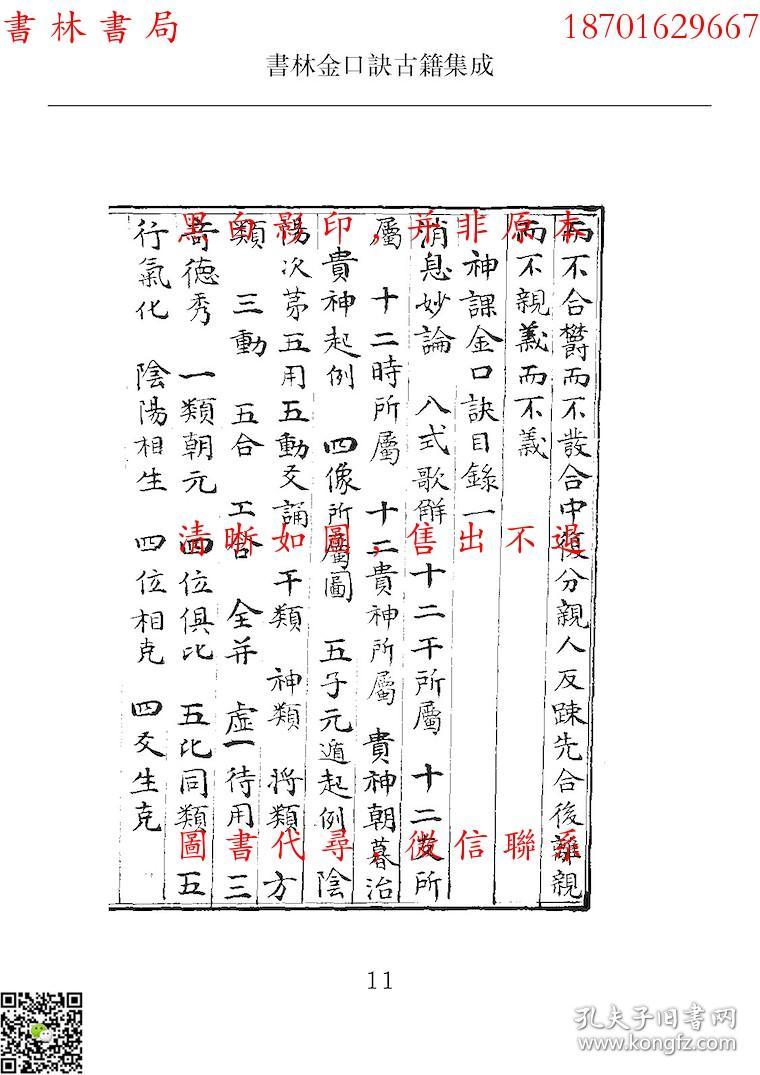 書林書局
18701629667
書林金口訣古籍集成
而不合欝而不發合中復分親人反踈先合後離親
而不親義而不義
神課金口訣目錄一
消息妙論 八式歌觧 十二干所屬 十二支所
屬 十二時所屬 十二貴神所屬 貴神朝暮治
貴神起例 四像所屬圖 五子元遁起例 陰
陽次苐五用五動爻誦 干類 神類 將類 方
類 三動 五合 全并 虚一待用 三
奇德秀 一類朝元 四位俱比 五比同類 五
行氣化 陰陽相生 四位相克 四爻生克
黑白影印，并非原本
清晰如圖，售出不退
圖書代尋，微信聯系
11
孔夫子旧书网
www.kongfz.com